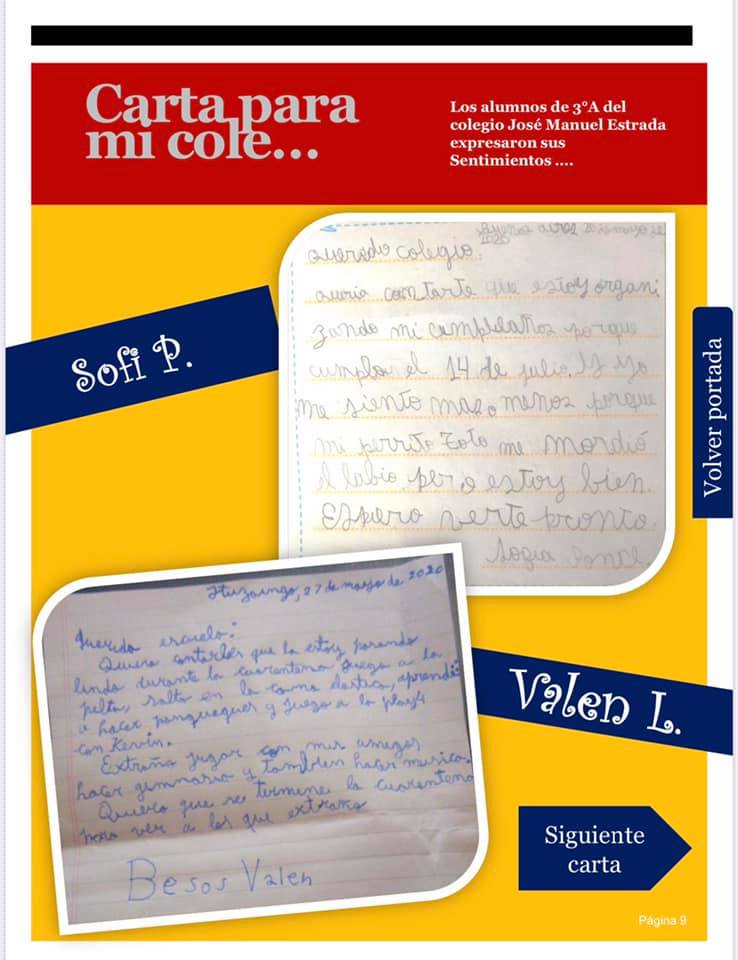 Carta para
mi cole...
Los alumnos de 3°A del
colegio José Manuel Estrada
expresaron sus
Sentimientos ....
Sofi P.
Buenos aires 20 de mayo de
2020
querado colegio.
quria contarte que estoy organi
zando mi cumpleaños porque
cumplo el 14 de julio. Y yo
me siento maso menos porque
mi perrito Toto me mordió
el labio pero estoy bien.
Espero verte pronto.
Volver portada
Ituzaingo, 27 de mayo de 2020
Querida escuela:
Quiero contarles que la estoy pasando
lindo durante la cuarentena juego a la
pelta, salto en la cama elastica, aprendi
a hacer panqueques y juego a la play4
con Kevin.
Extraño jugar con mis amigos
hacer gimnasia y tambien hacer musica.
Quiero que se termine la cuarentena
para ver a los que extraño
Besos Valen
Valen L.
Siguiente
carta
Página 9